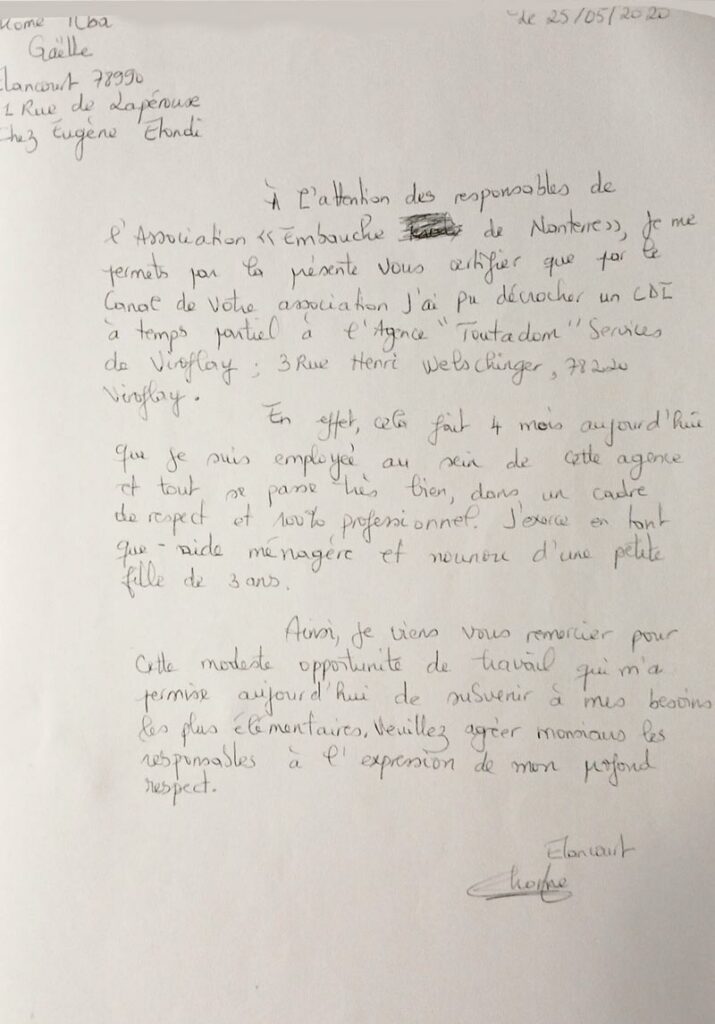 le 25/05/2020
Kome Ilba
Gaëlle
Elancourt 78990
1 Rue de Lapérouse
Chez Eugène Elondi
À L'attention des responsables de
l'Association << Embauche de Nanterre>>, Je me
permets par la présente vous certifier que par le
Canal de votre association J'ai pu décrocher un CDI
à temps partiel à l'Agence "Toutadom" Services
de Viroflay ; 3 Rue Henri Welschinger, 78220
Viroflay.
En effet, cela fait 4 mois aujourd'hui
que je suis employée au sein de cette agence
et tout se passe très bien, dans un cadre
de respect et 100% professionnel. J'exerce en tant
que - aide ménagère et nounou d'une petite
fille de 3 ans.
Ainsi, je viens vous remercier pour
Cette modeste opportunité de travail qui m'a
permise aujourd'hui de subvenir à mes besoins
les plus élémentaires. Veuillez agréer monsieurs les
responsables à l'expression de mon profond
respect.
Elancourt